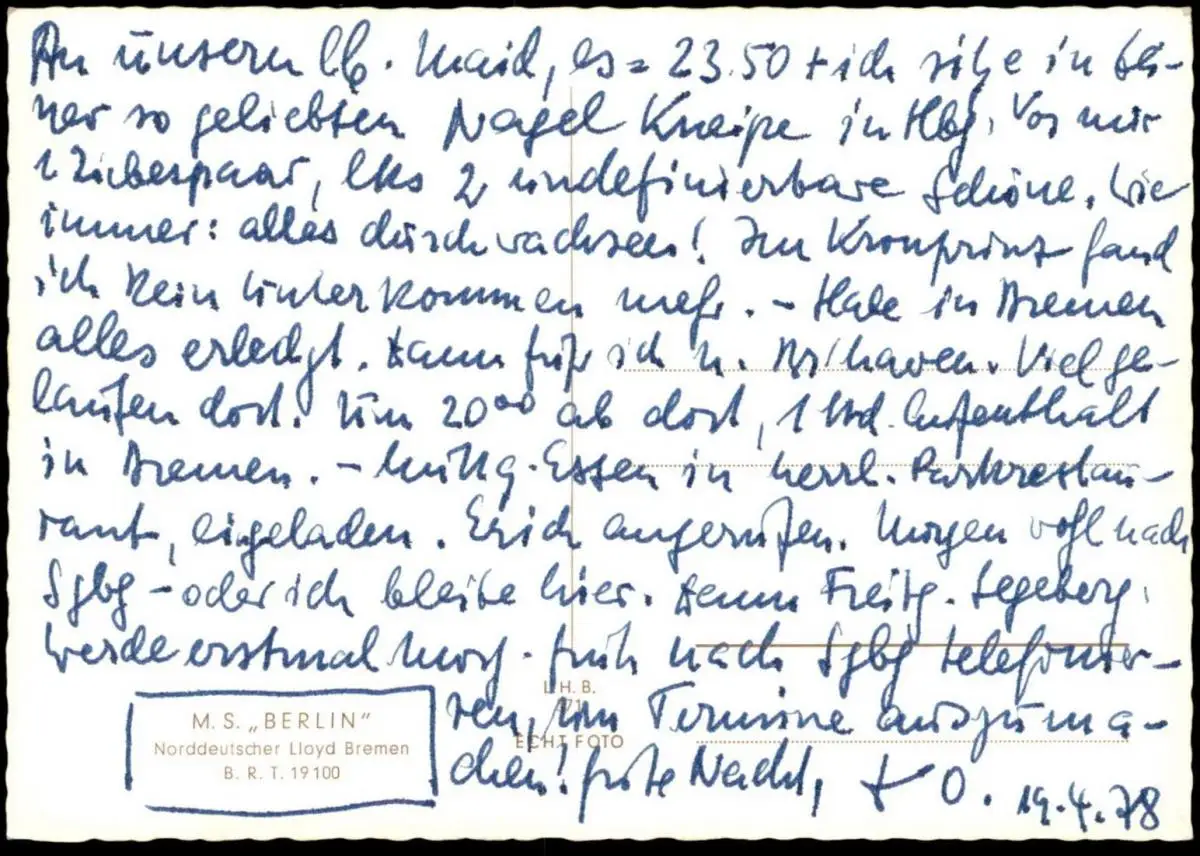 An unsern lb. Maid, es = 23.50 + ich sitze in dei-
ner so geliebten Nagel Kneipe in Hbg. Vor mir
1 Liebespaar, lks 2 undefinierbare Schöne. Wie
immer: alles durchwachsen! Im Kronprinz fand
ich kein Unterkommen mehr. - Habe in Bremen
alles erledgt. Dann fuhr ich n. Brhaven. Viel ge-
laufen dort. Um 20⁰⁰ ab dort, 1 Std. Aufenthalt
in Bremen. - Mittg. Essen in herrl. Parkrestau-
rant, eigeladen. Erich angerufen. Morgen wohl nach
Sgbg - oder ich bleibe hier. Dann Freitg. Segeberg.
Werde erstmal morg. früh nach Sgbg telefonier-
ren, um Termine auszuma-
chen! Gute Nacht, 
O. 19.4.78
M. S. „BERLIN"
Norddeutscher Lloyd Bremen
B. R. T. 19100
L.H.B.
ECHT FOTO